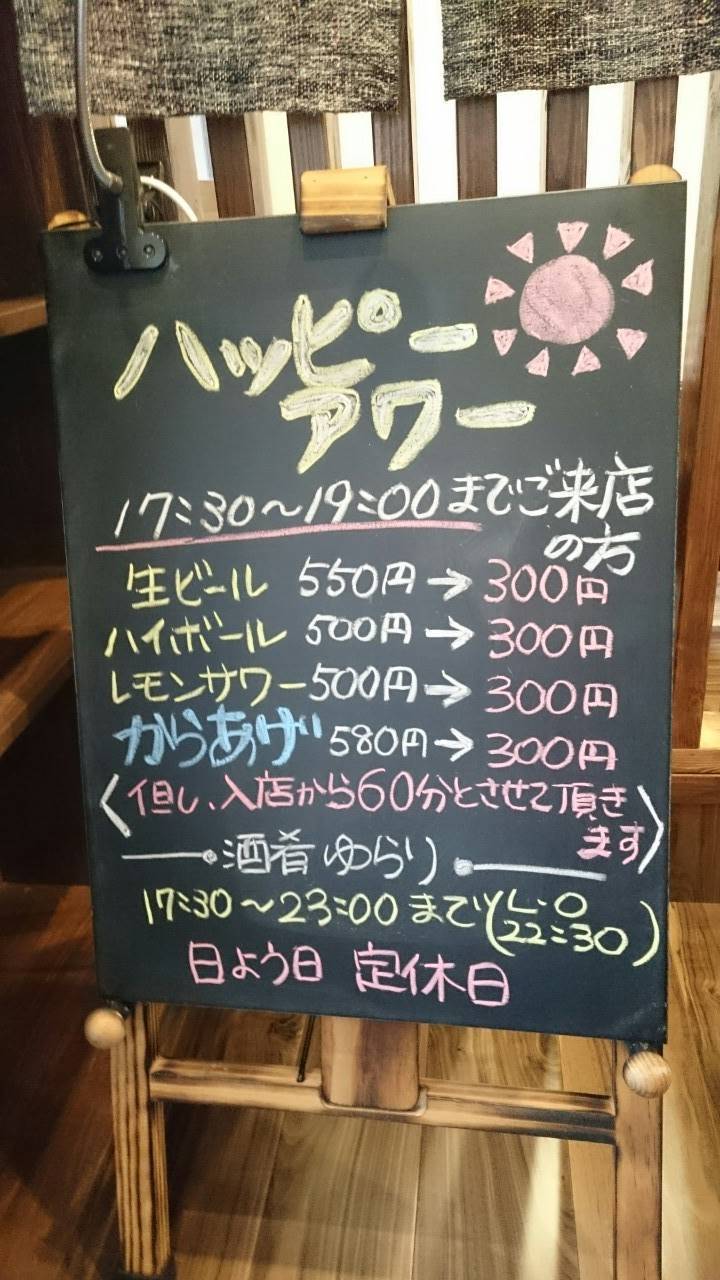 ハッピー
アワー
17:30～19:00までご来店
の方
生ビール 550円→300円
ハイボール 500円→300円
レモンサワー500円→300円
からあげ 580円→300円
〈但し、入店から60分とさせて頂き
ます〉
酒肴 ゆらり
17:30～23:00まで(L.O
22:30)
日よう日 定休日